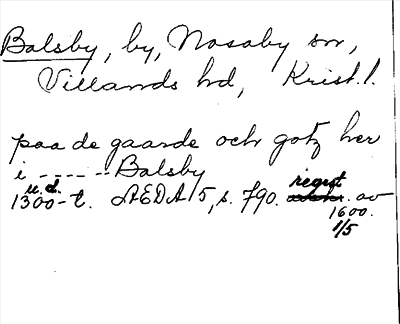 Balsby, by, Nosaby sn,
Villands hd, Krist. l.
paa de gaarde och gotz her
i ------ Balsby
u.d.
1300-t. ÆDA 5, s. 790. regest av
1600.
1/5